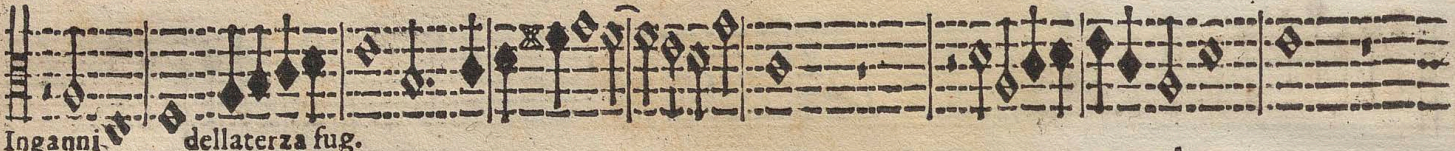 Inganni dellaterza fug.